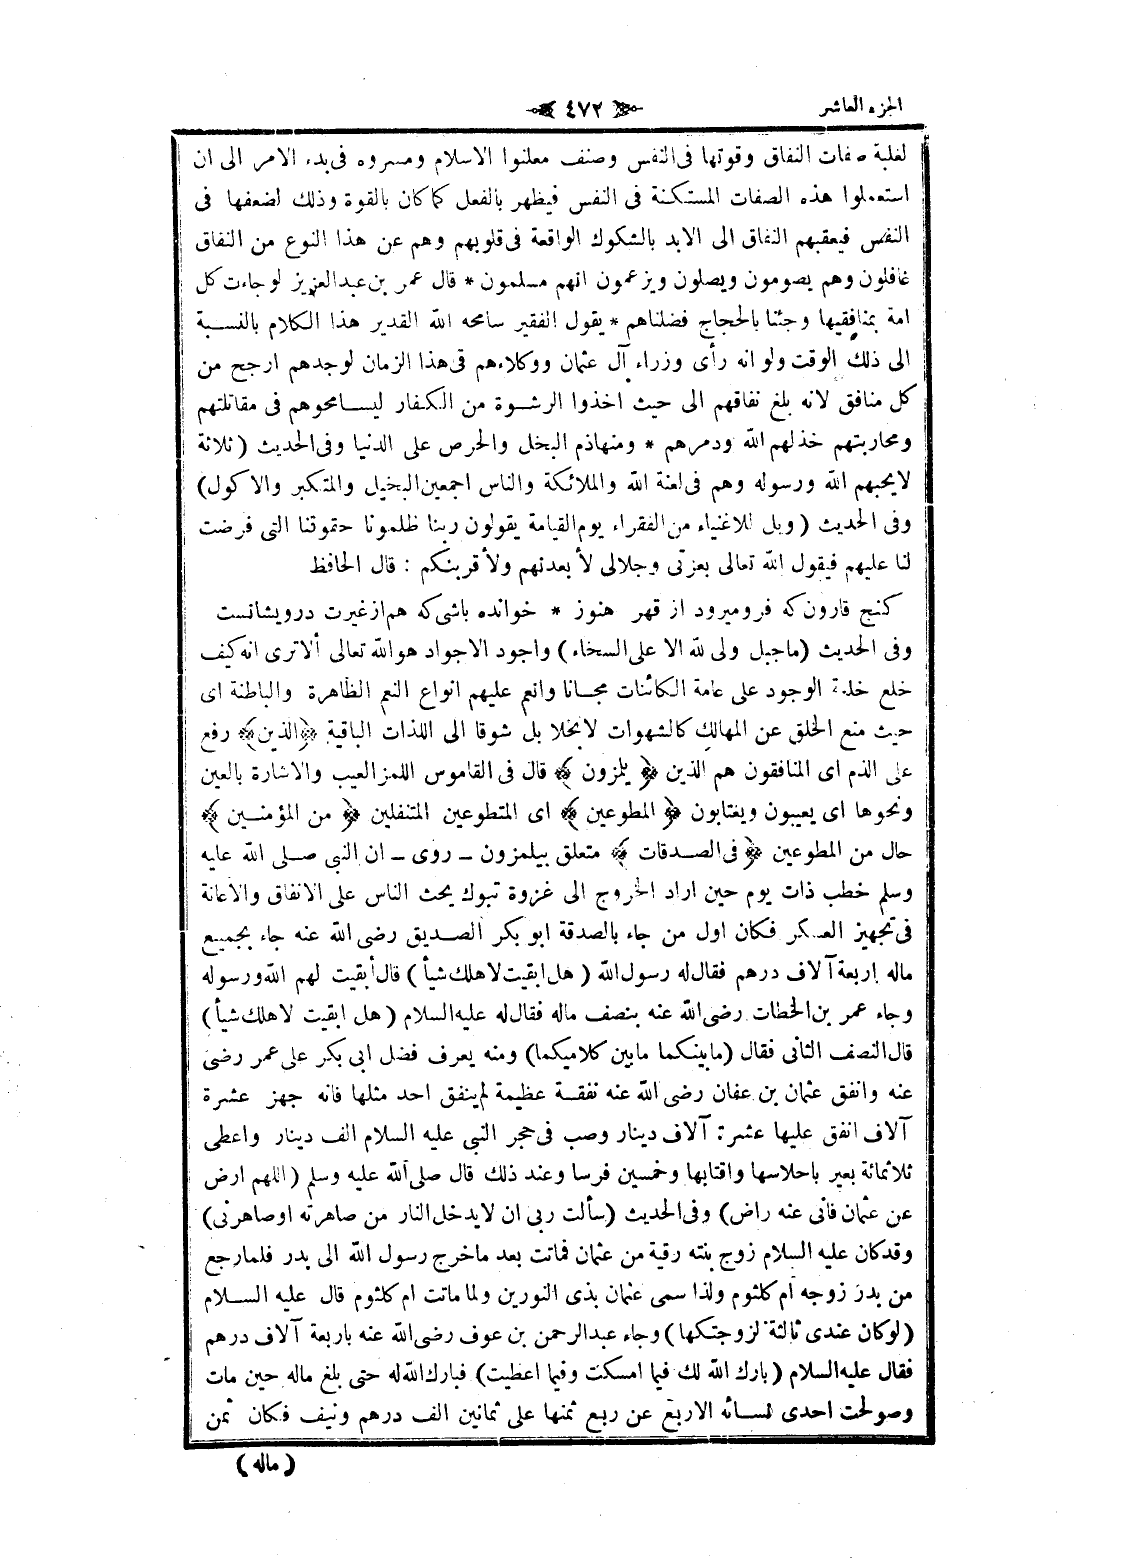 الجزء العاشر
٤٧٢
لغلبة صفات النفاق وقوتها فى النفس وصنف معلنوا الاسلام ومسروه فى بدء الامر الى ان
استعملوا هذه الصفات المستكنة فى النفس فيظهر بالفعل كما كان بالقوة وذلك لضعفها فى
النفس فيعقبهم النفاق الى الابد بالشكوك الواقعة فى قلوبهم وهم عن هذا النوع من النفاق
غافلون وهم يصومون ويصلون ويزعمون انهم مسلمون * قال عمر بن عبد العزيز لو جاءت كل
امة بمنافقيها وجئنا بالحجاج فضلناهم * يقول الفقير سامحه الله القدير هذا الكلام بالنسبة
الى ذلك الوقت ولو انه رأى وزراء آل عثمان ووكلاءهم فى هذا الزمان لوجدهم ارجح من
كل منافق لانه بلغ نفاقهم الى حيث اخذوا الرشوة من الكفار ليسامحوهم فى مقاتلتهم
ومحاربتهم خذلهم الله ودمرهم * ومنها ذم البخل والحرص على الدنيا وفى الحديث (ثلاثة
لا يحبهم الله ورسوله وهم فى لعنة الله والملائكة والناس اجمعين البخيل والمتكبر والاكول)
وفى الحديث (ويل للاغنياء من الفقراء يوم القيامة يقولون ربنا ظلمونا حقوقنا التى فرضت
لنا عليهم فيقول الله تعالى بعزتى وجلالى لأبعدنهم ولأقربنكم : قال الحافظ
كنج قارون كه فرو ميرود از قهر هنوز * خوانده باشى كه هم از غيرت درويشانست
وفى الحديث (ما جبل ولى لله الا على السخاء) واجود الاجواد هو الله تعالى ألا ترى انه كيف
خلع خلعة الوجود على عامة الكائنات مجانا وانعم عليهم انواع النعم الظاهرة والباطنة اى
حيث منع الخلق عن المهالك كالشهوات لا بخلا بل شوقا الى اللذات الباقية ﴿الذين﴾ رفع
على الذم اى المنافقون هم الذين ﴿يلمزون﴾ قال فى القاموس اللمز العيب والاشارة بالعين
ونحوها اى يعيبون ويغتابون ﴿المطوعين﴾ اى المتطوعين المتنفلين ﴿من المؤمنين﴾
حال من المطوعين ﴿فى الصدقات﴾ متعلق بيلمزون ـ روى ـ ان النبى صلى الله عليه
وسلم خطب ذات يوم حين اراد الخروج الى غزوة تبوك يحث الناس على الانفاق والاعانة
فى تجهيز العسكر فكان اول من جاء بالصدقة ابو بكر الصديق رضى الله عنه جاء بجميع
ماله اربعة آلاف درهم فقال له رسول الله (هل ابقيت لاهلك شيأ) قال أبقيت لهم الله ورسوله
وجاء عمر بن الخطات رضى الله عنه بنصف ماله فقال له عليه السلام (هل ابقيت لاهلك شيأ)
قال النصف الثانى فقال (ما بينكما ما بين كلاميكما) ومنه يعرف فضل ابى بكر على عمر رضى
عنه وانفق عثمان بن عفان رضى الله عنه نفقة عظيمة لم ينفق احد مثلها فانه جهز عشرة
آلاف انفق عليها عشرة آلاف دينار وصب فى حجر النبى عليه السلام الف دينار واعطى
ثلاثمائة بعير باحلاسها واقتابها وخمسين فرسا وعند ذلك قال صلى الله عليه وسلم (اللهم ارض
عن عثمان فأنى عنه راض) وفى الحديث (سألت ربى ان لا يدخل النار من صاهرته او صاهرنى)
وقد كان عليه السلام زوج بنته رقية من عثمان فماتت بعد ما خرج رسول الله الى بدر فلما رجع
من بدر زوجه أم كلثوم ولذا سمى عثمان بذى النورين ولما ماتت ام كلثوم قال عليه السلام
(لو كان عندى ثالثة لزوجتكها) وجاء عبد الرحمن بن عوف رضى الله عنه باربعة آلاف درهم
فقال عليه السلام (بارك الله لك فيما امسكت وفيما اعطيت) فبارك الله له حتى بلغ ماله حين مات
وصولحت احدى نسائه الاربع عن ربع ثمنها على ثمانين الف درهم ونيف فكان ثمن
(ماله)